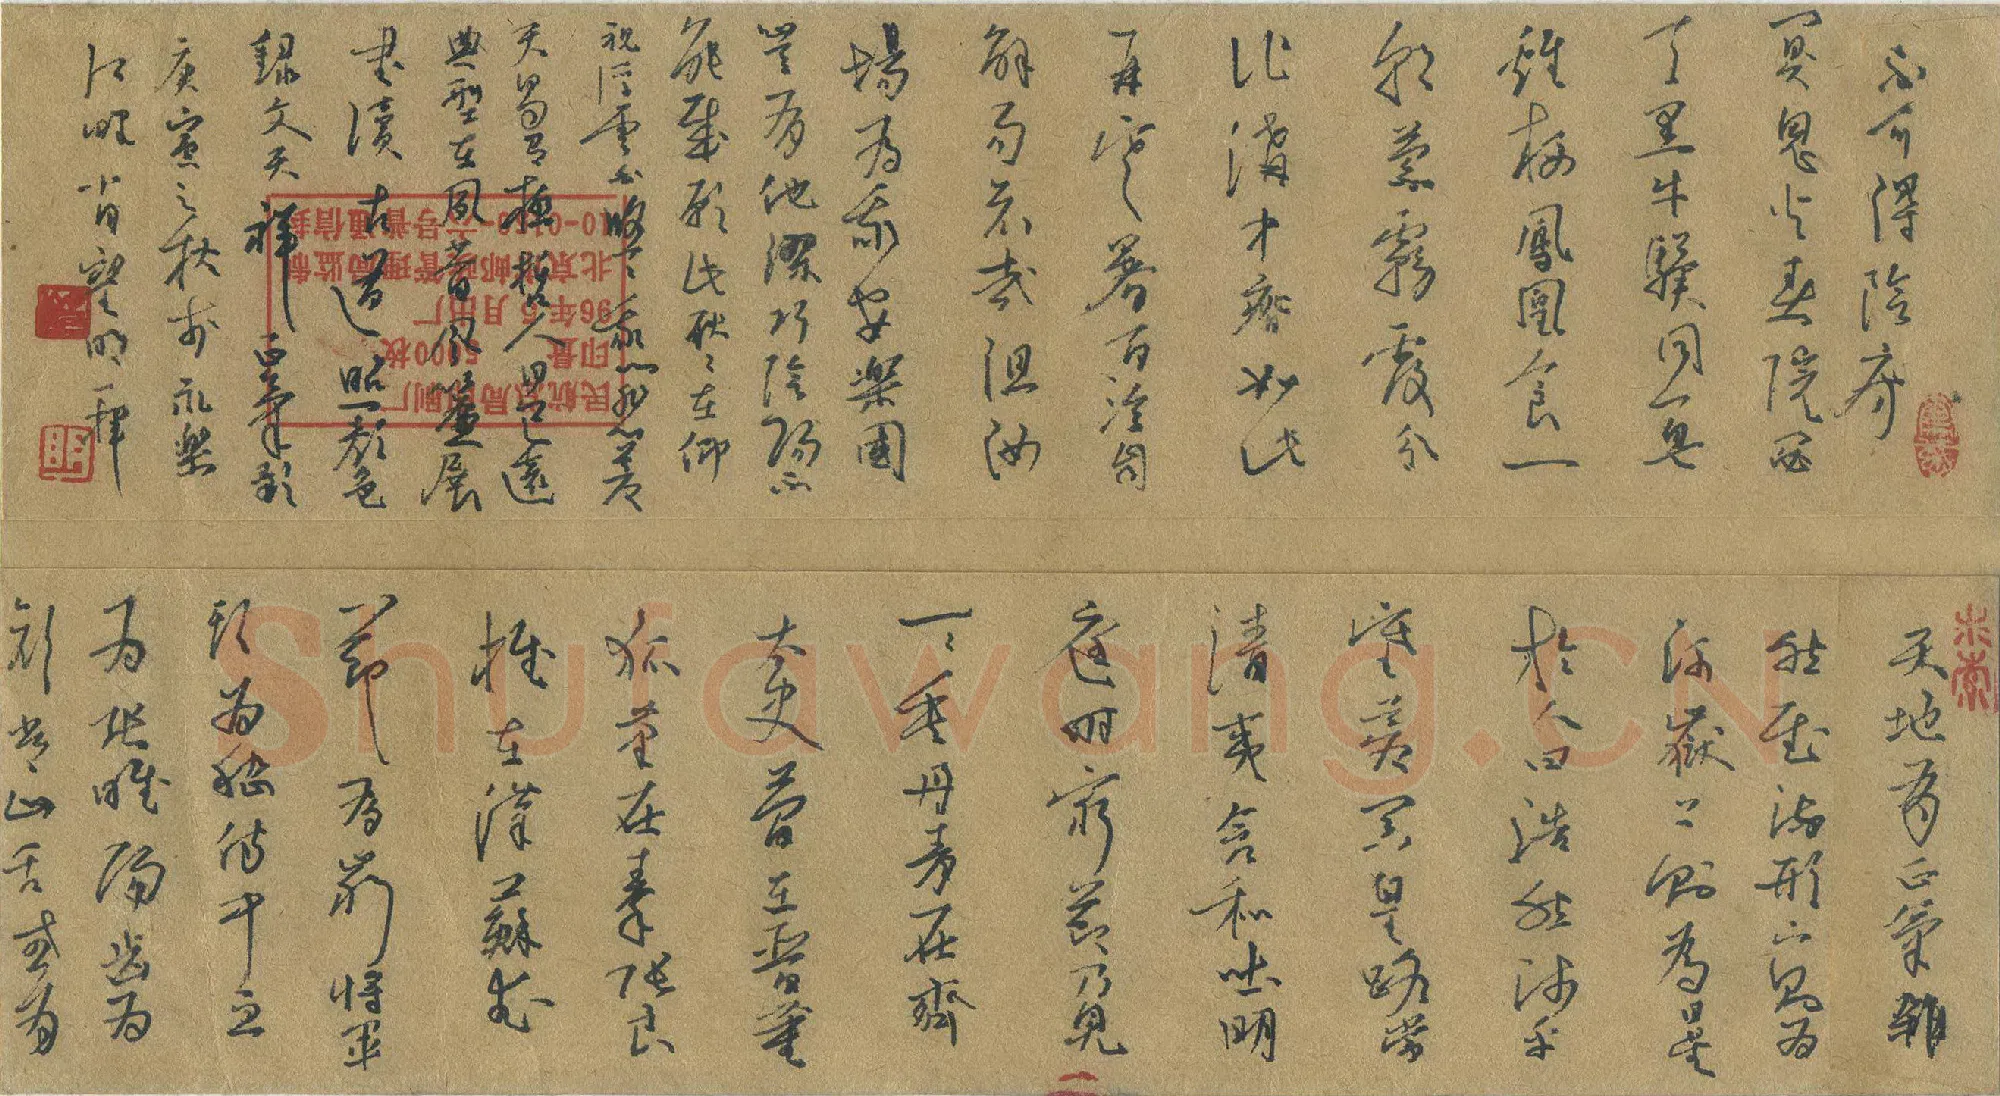 不可得陰房
鬼火春院閟
天黑牛驥同一皂
雞栖鳳凰食一
朝蒙霧露分
作溝中瘠如此
再寒暑百沴自
辟易哀哉沮洳
場為我安樂國
豈有他繆巧陰陽不
能賊顧此耿々在仰
視浮雲白悠々我心悲蒼
天曷有極哲人日已遠
典型在夙昔風簷展
書讀古道照顏色
錄文天祥正氣歌
庚寅之秋於永樂
江畔肖望明
六号普通信封
北京邮政管理局监制
96年5月出厂
印量 5000枚
民航局印刷厂
天地有正氣雜
然賦流形下則為
河嶽上則為日星
於人曰浩然沛乎
塞蒼冥皇路當
清夷含和吐明
庭時窮節乃見
一々垂丹青在齊
太史簡在晉董
狐筆在秦張良
椎在漢蘇武
節為嚴將軍
頭為嵇侍中血
為張睢陽齒為
顏常山舌或為
Shufawang.CN